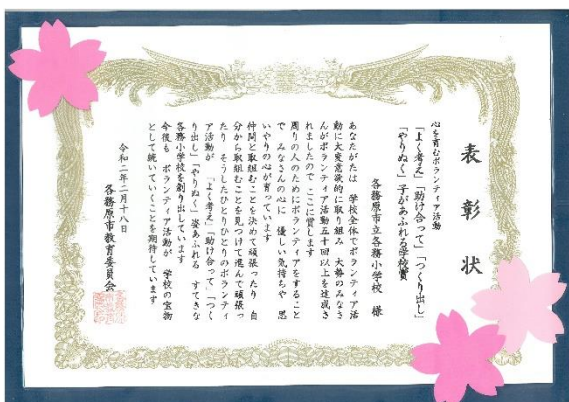 表彰状
心を育むボランティア活動
「よく考え」「助け合って」「つくり出し」
「やりぬく」子があふれる学校賞
各務原市立各務小学校 様
あなたがたは 学校全体でボランティア活
動に大変意欲的に取り組み 大勢のみなさ
んがボランティア活動五十回以上を達成さ
れましたので ここに賞します
周りの人のためにボランティアをすること
で みなさんの心に 優しい気持ちや 思
いやりの心が育っています
仲間と取組むことを決めて頑張ったり 自
分から取組むことを見つけて進んで頑張っ
たり そうしたひとりひとりのボランティ
ア活動が 「よく考え」「助け合って」「つく
り出し」「やりぬく」姿あふれる すてきな
各務小学校を創り出しています
今後も ボランティア活動が 学校の宝物
として続いていくことを期待しています
令和二年二月十八日
各務原市教育委員会